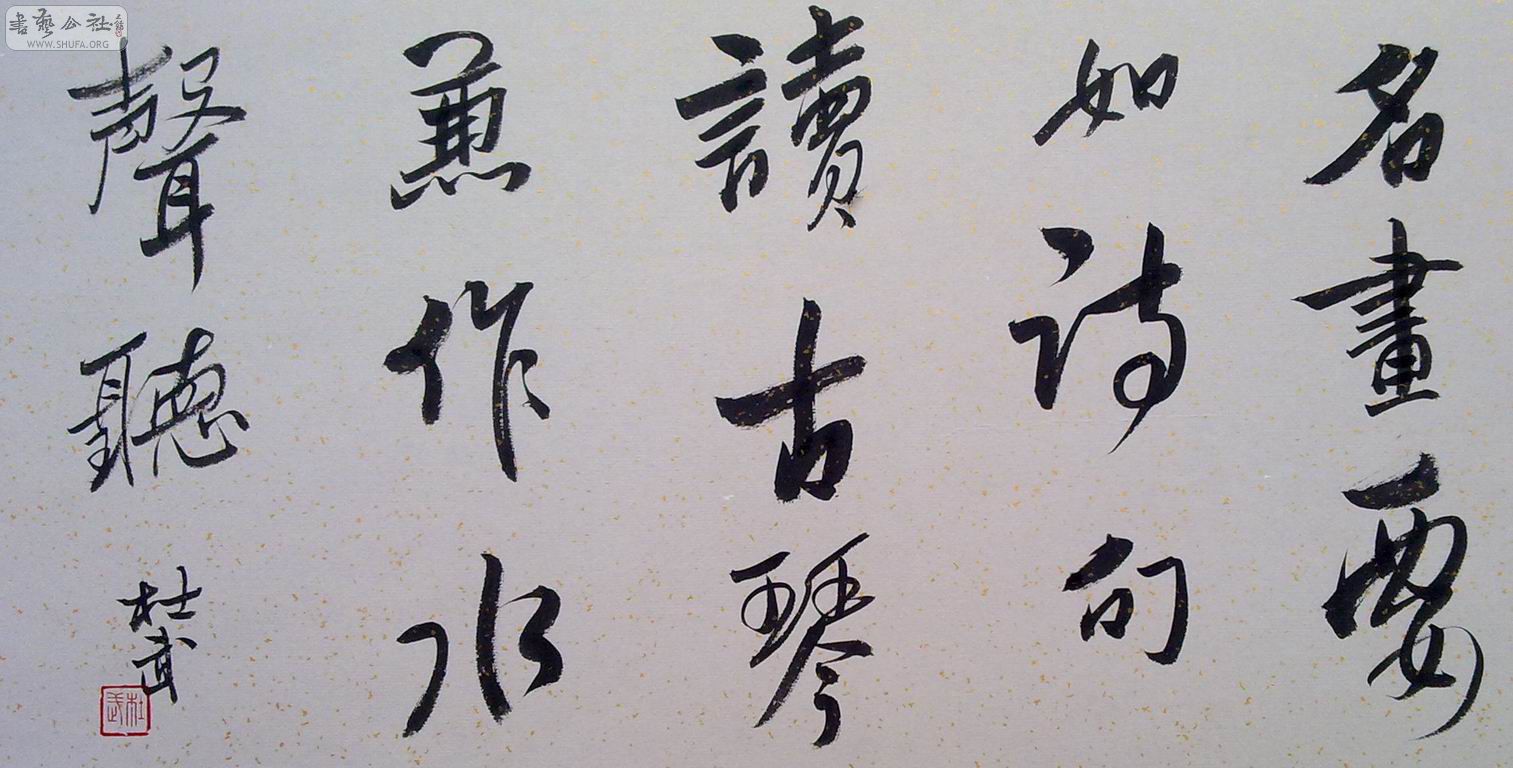 名畫要
如詩句
讀古琴
兼作水
聲聽
杜武
杜武
書藝公社
WWW.SHUFA.ORG